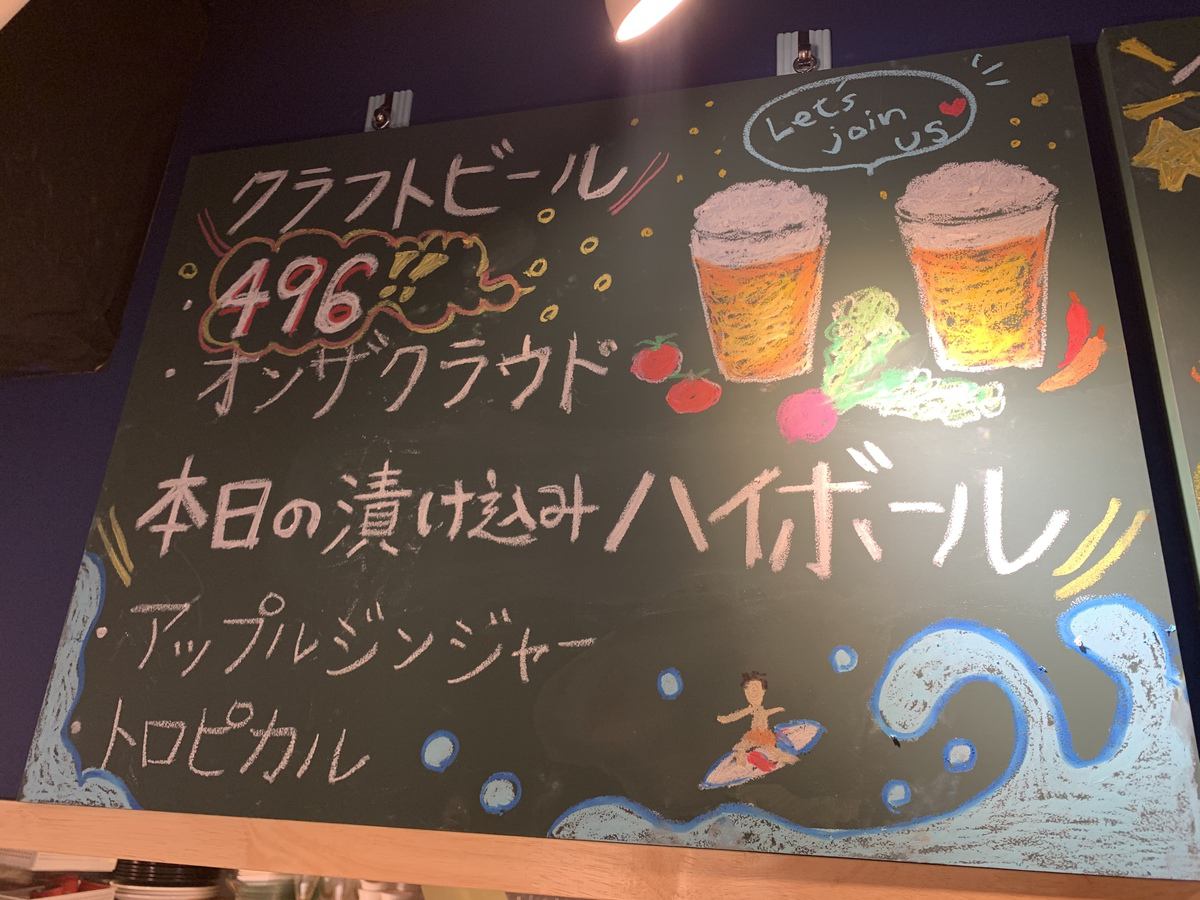 Let's
join
us
クラフトビール
・496!!
・オンザクラウド
本日の漬け込みハイボール
・アップルジンジャー
・トロピカル